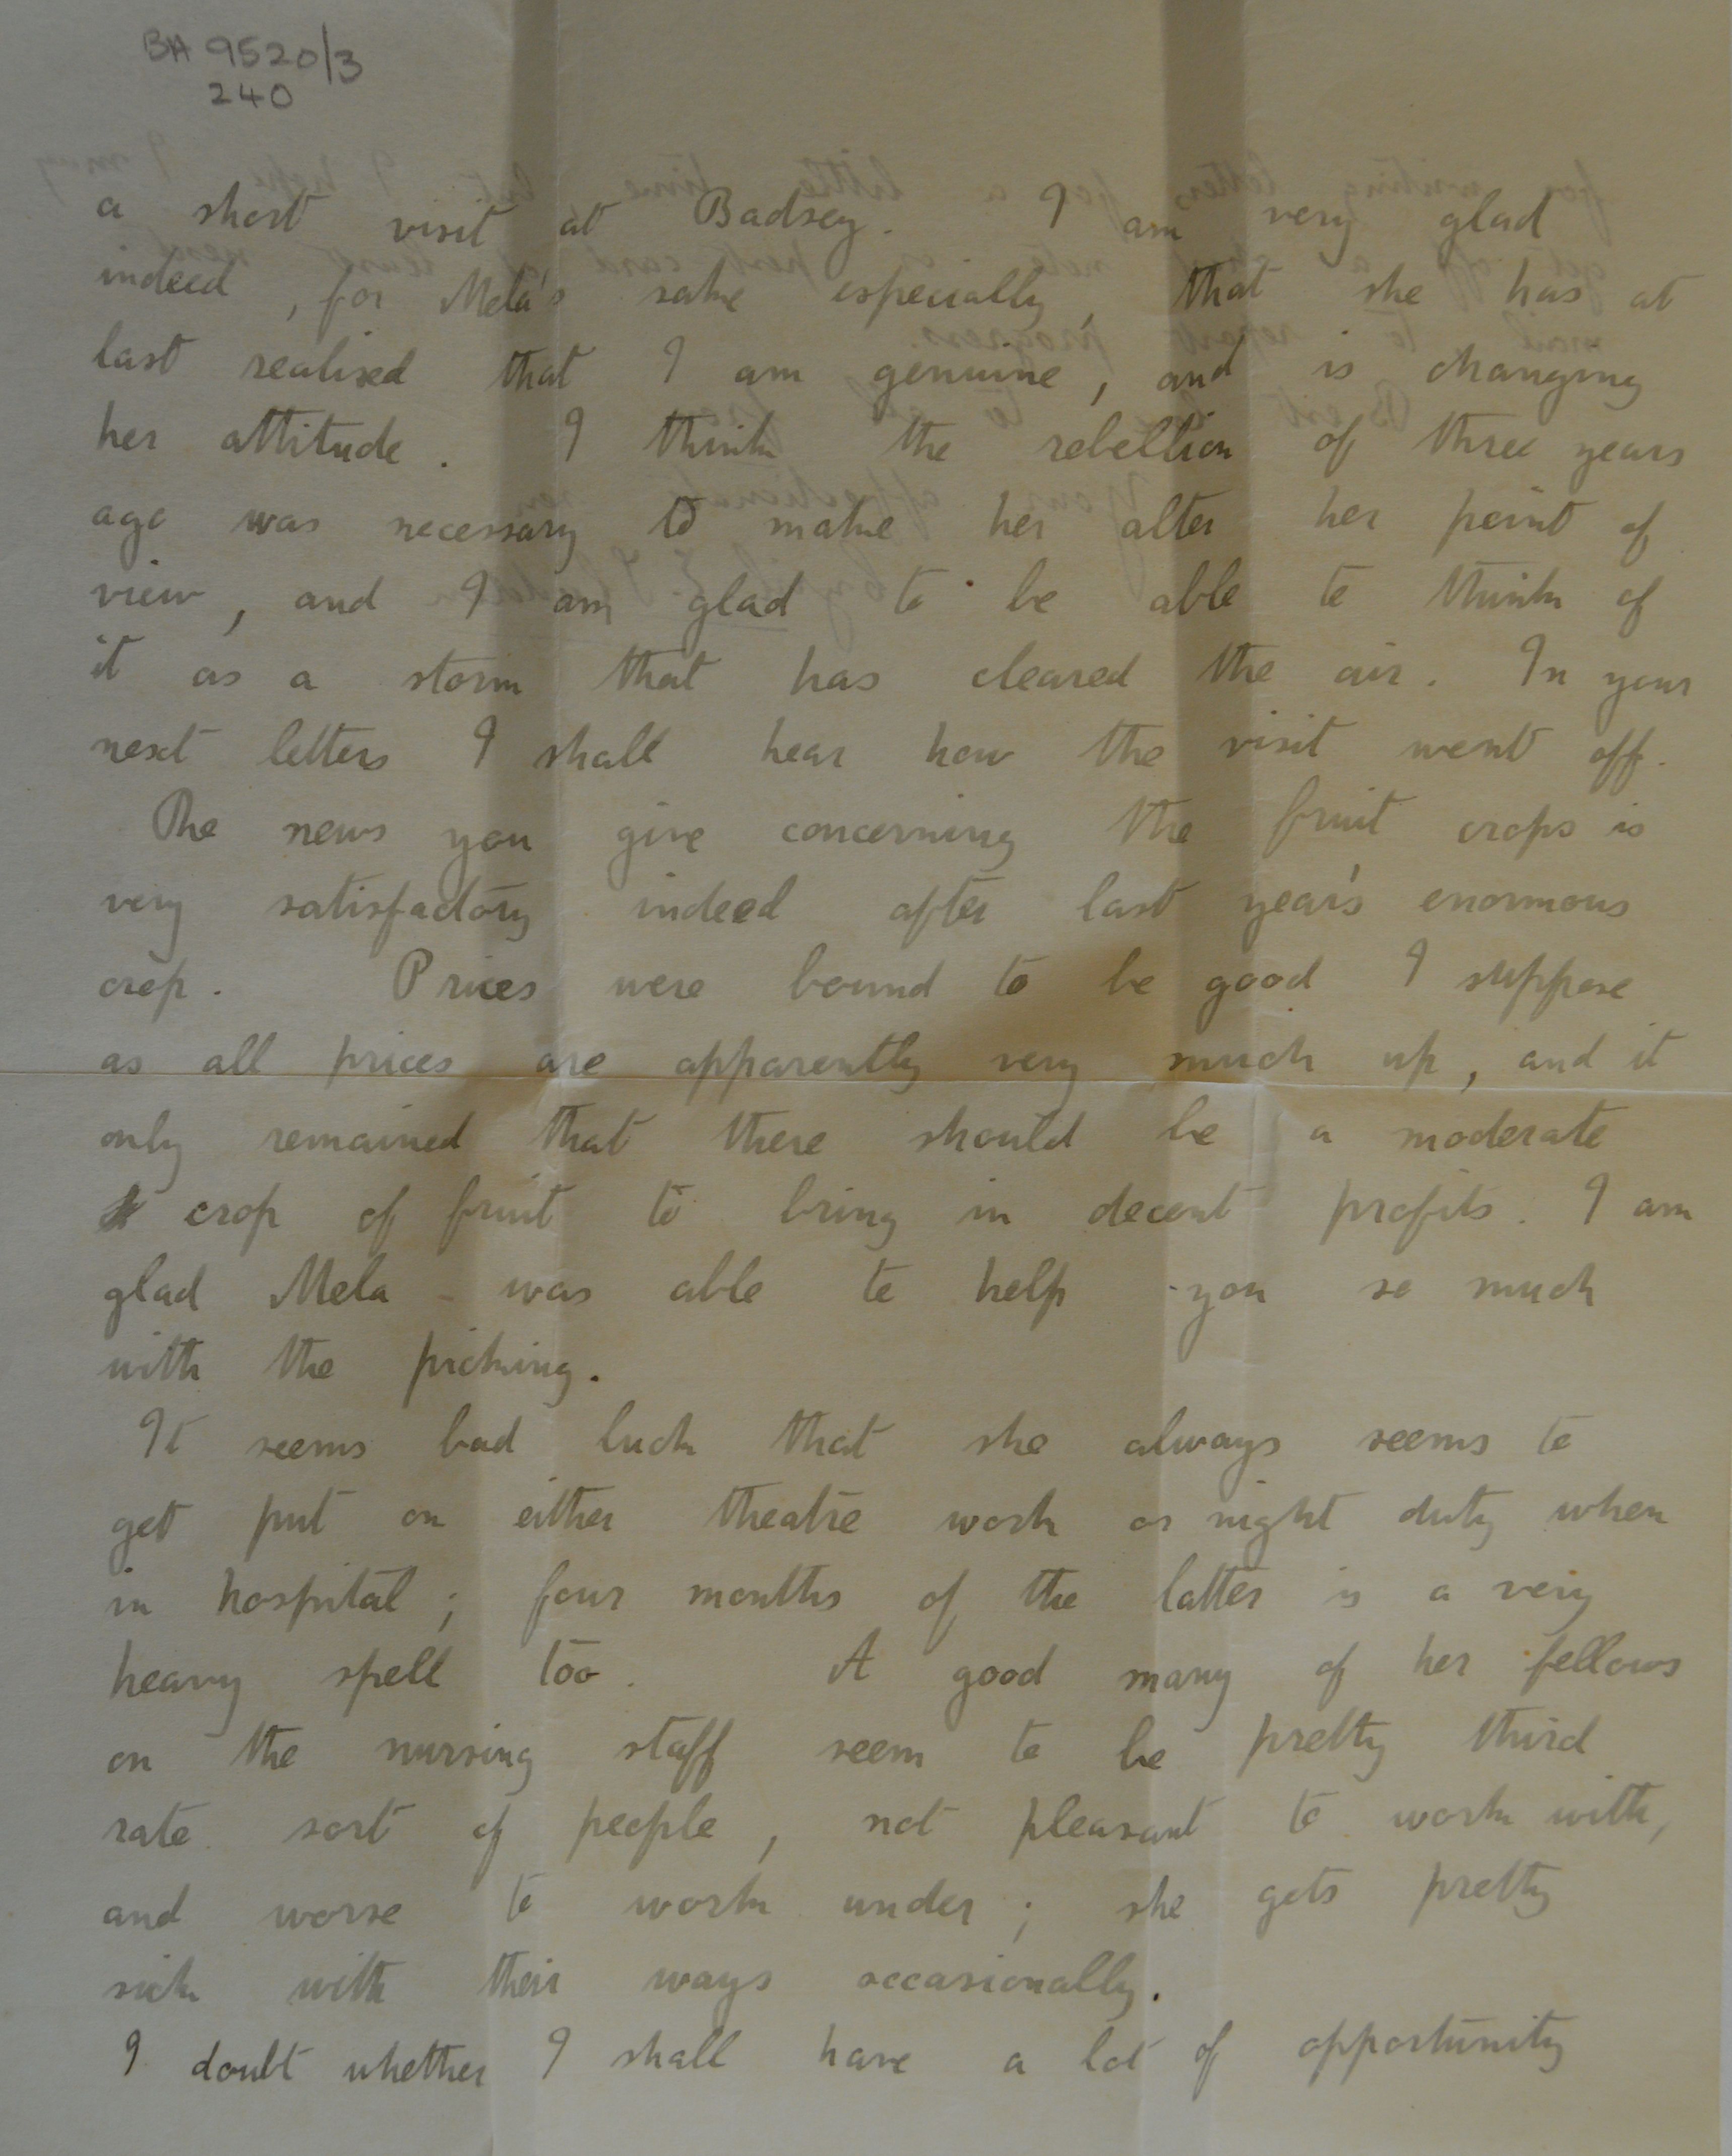 BA 9520/3
240
a short visit at Badsey. I am very glad
indeed, for Mela's sake especially, that she has at
last realised that I am genuine, and is changing
her attitude. I think the rebellion of three years
ago was necessary to make her alter her point of
view, and I am glad to be able to think of
it as a storm that has cleared the air. In your
next letters I shall hear how the visit went off.
The news you give concerning the fruit crops is
very satisfactory indeed after last year's enormous
crop. Prices were bound to be good I suppose
as all prices are apparently very much up, and it
only remained that there should be a moderate
crop of fruit to bring in decent profits. I am
glad Mela was able to help you so much
with the picking.
It seems bad luck that she always seems to
get put on either theatre work or night duty when
in hospital; four months of the latter is a very
heavy spell too. A good many of her fellows
on the nursing staff seem to be pretty third
rate sort of people, not pleasant to work with,
and worse to work under; she gets pretty
sick with their ways occasionally.
I doubt whether I shall have a lot of opportunity